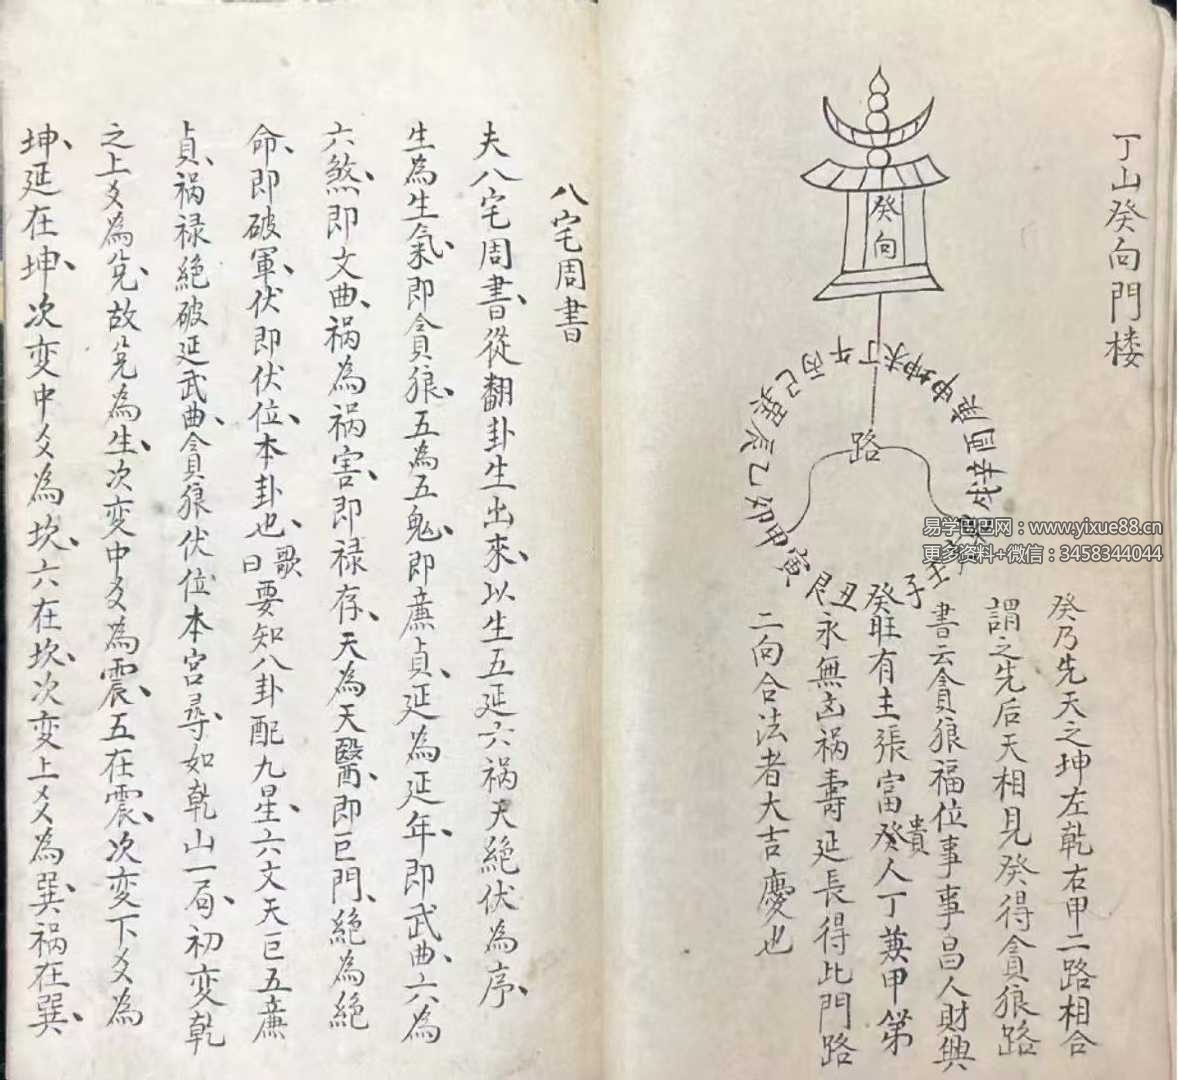 丁山癸向門楼
癸向
路
丁午丙巳巽辰乙卯甲寅艮丑癸子壬
戌辛酉庚申坤未
癸乃先天之坤左乾右甲二路相合
謂之先后天相見癸得貪狼路
書云貪狼福位事事昌人財興
旺有主張富貴癸人丁兼甲第
永無凶祸壽延長得比門路
二向合法者大吉慶也
易学巴巴网：www.yixue88.cn
更多资料+微信：3458344044
八宅周書
夫八宅周書從翻卦生出來以生五延六祸天絶伏為序
生為生氣即貪狼五為五鬼即廉貞延為延年即武曲六為
六煞即文曲祸為祸害即禄存天為天醫即巨門絶為絶
命即破軍伏即伏位本卦也歌曰要知八卦配九星六文天巨五廉
貞祸禄絶破延武曲貪狼伏位本宮尋如乾山一局初变乾
之上爻為兌故兌為生次变中爻為震五在震次变下爻為
坤延在坤次变中爻為坎六在坎次变上爻為巽祸在巽